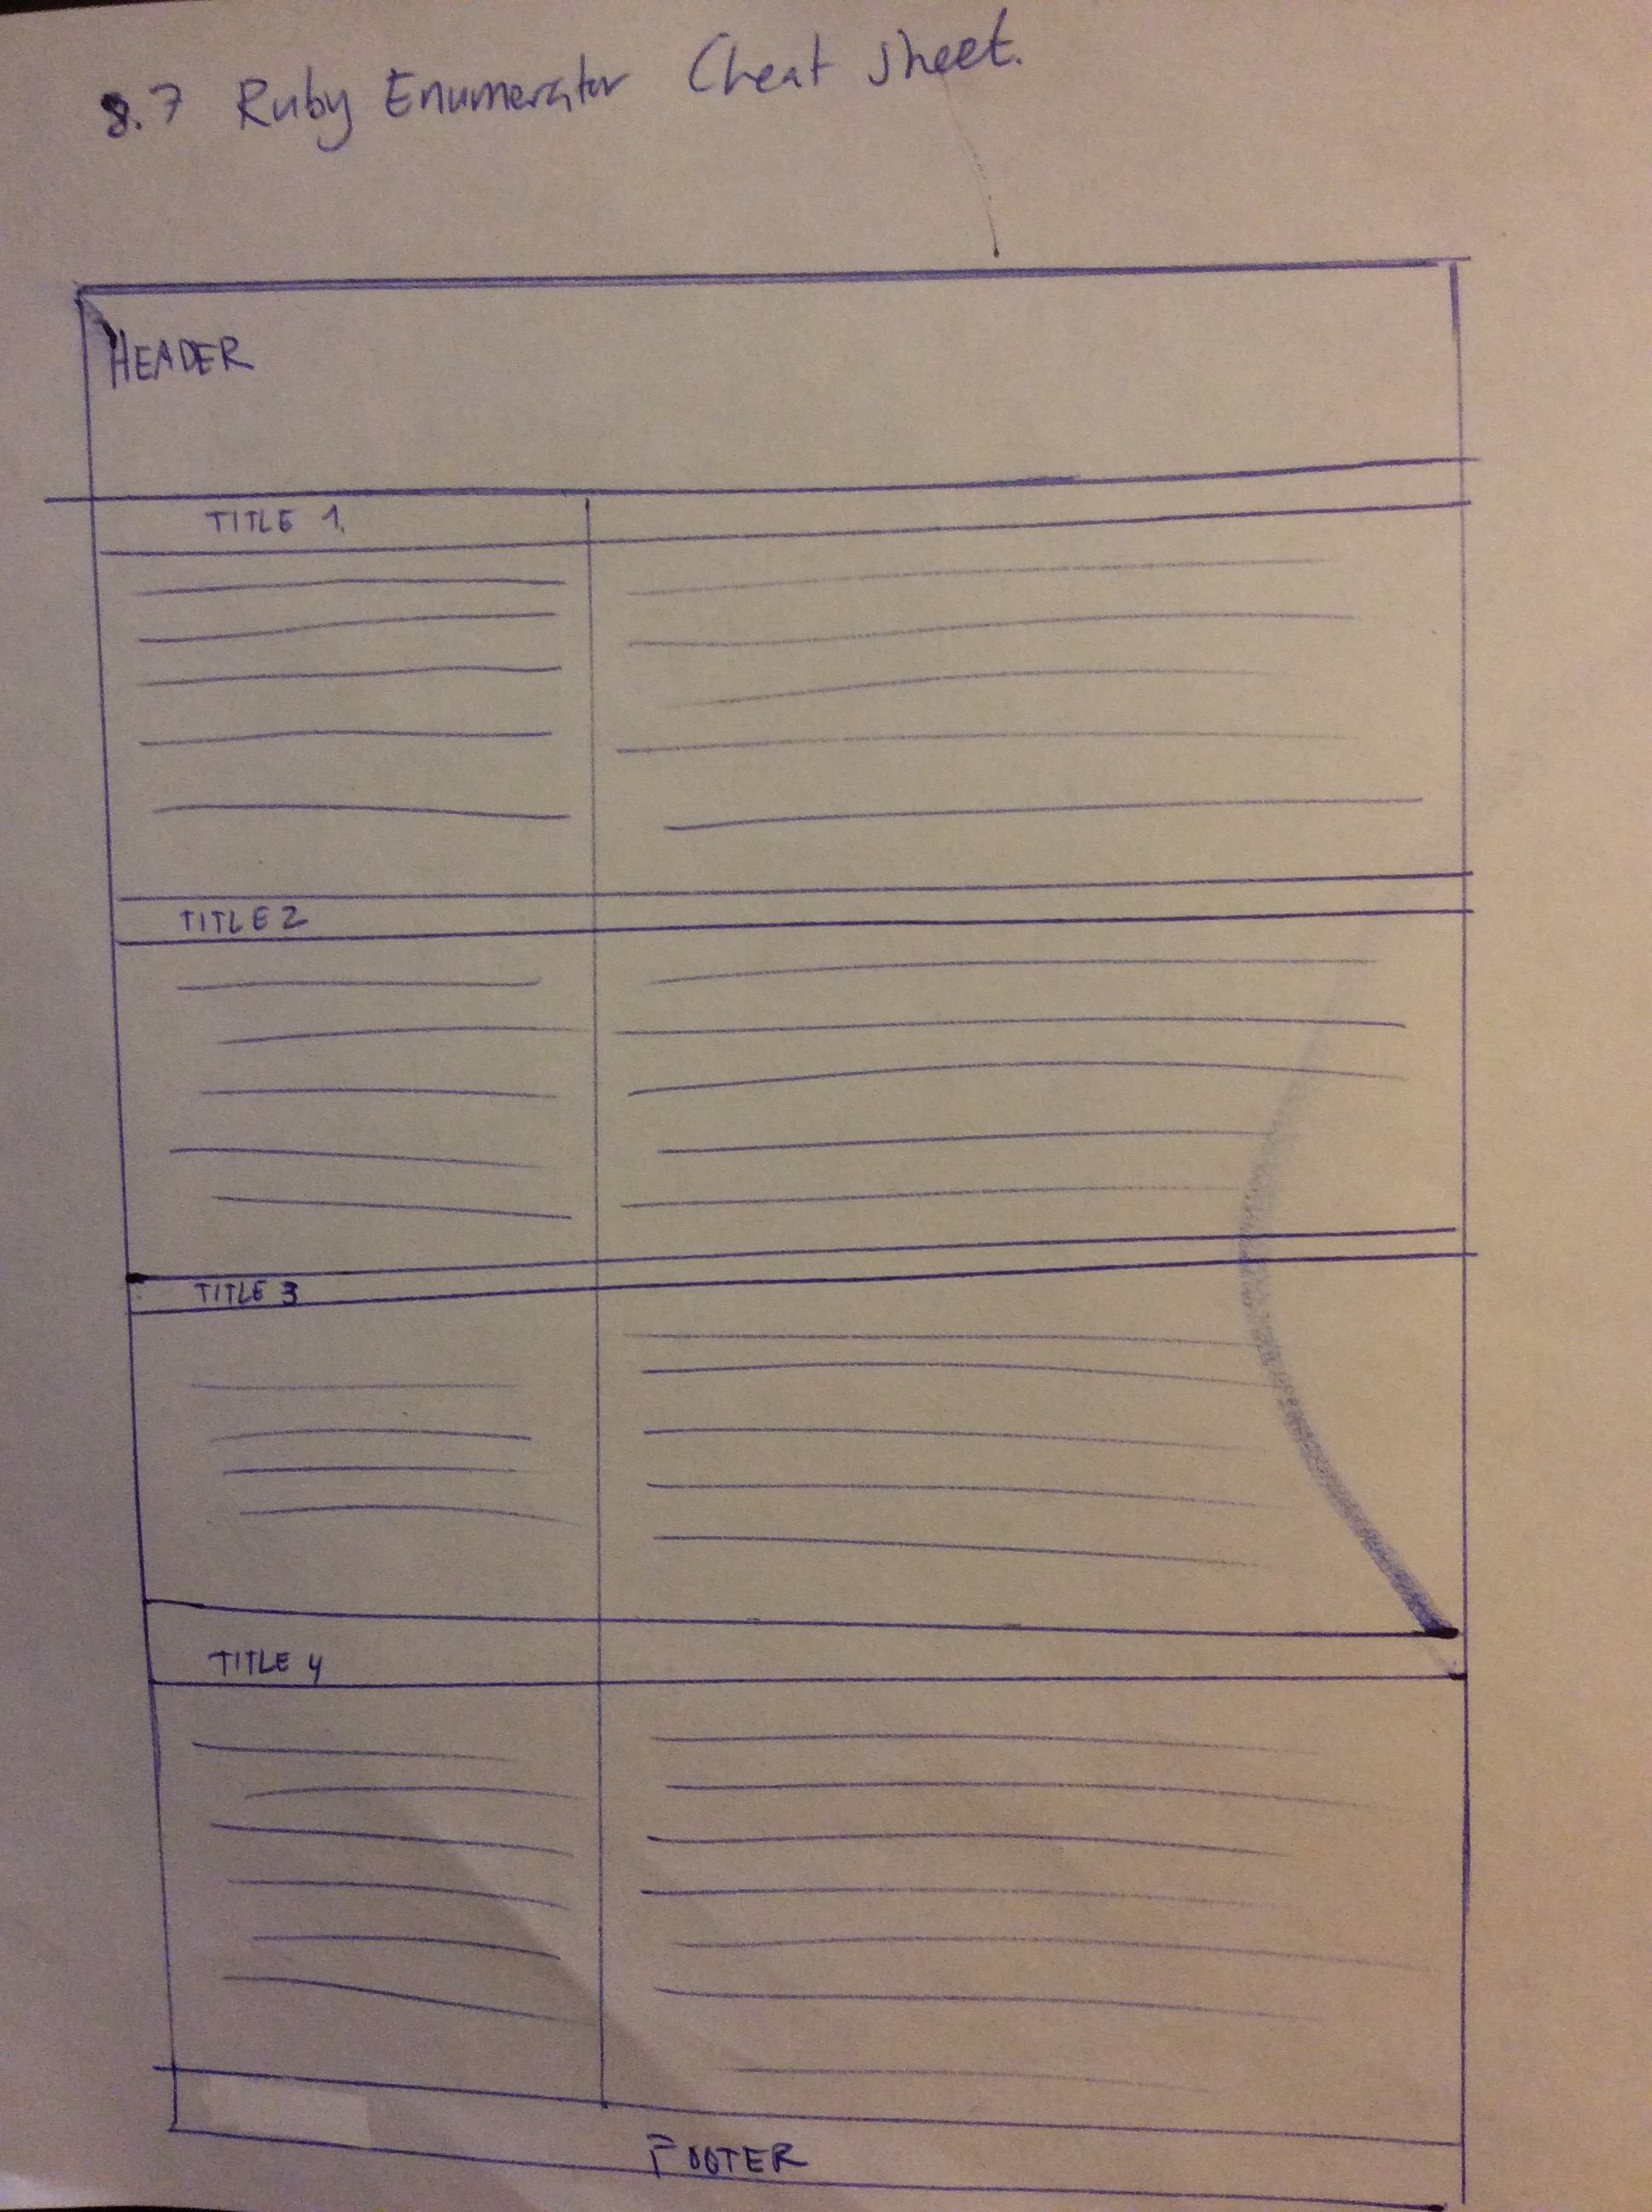 8.7 Ruby Enumerator Cheat Sheet.
HEADER
TITLE 1.
TITLE 2
TITLE 3
TITLE 4
FOOTER